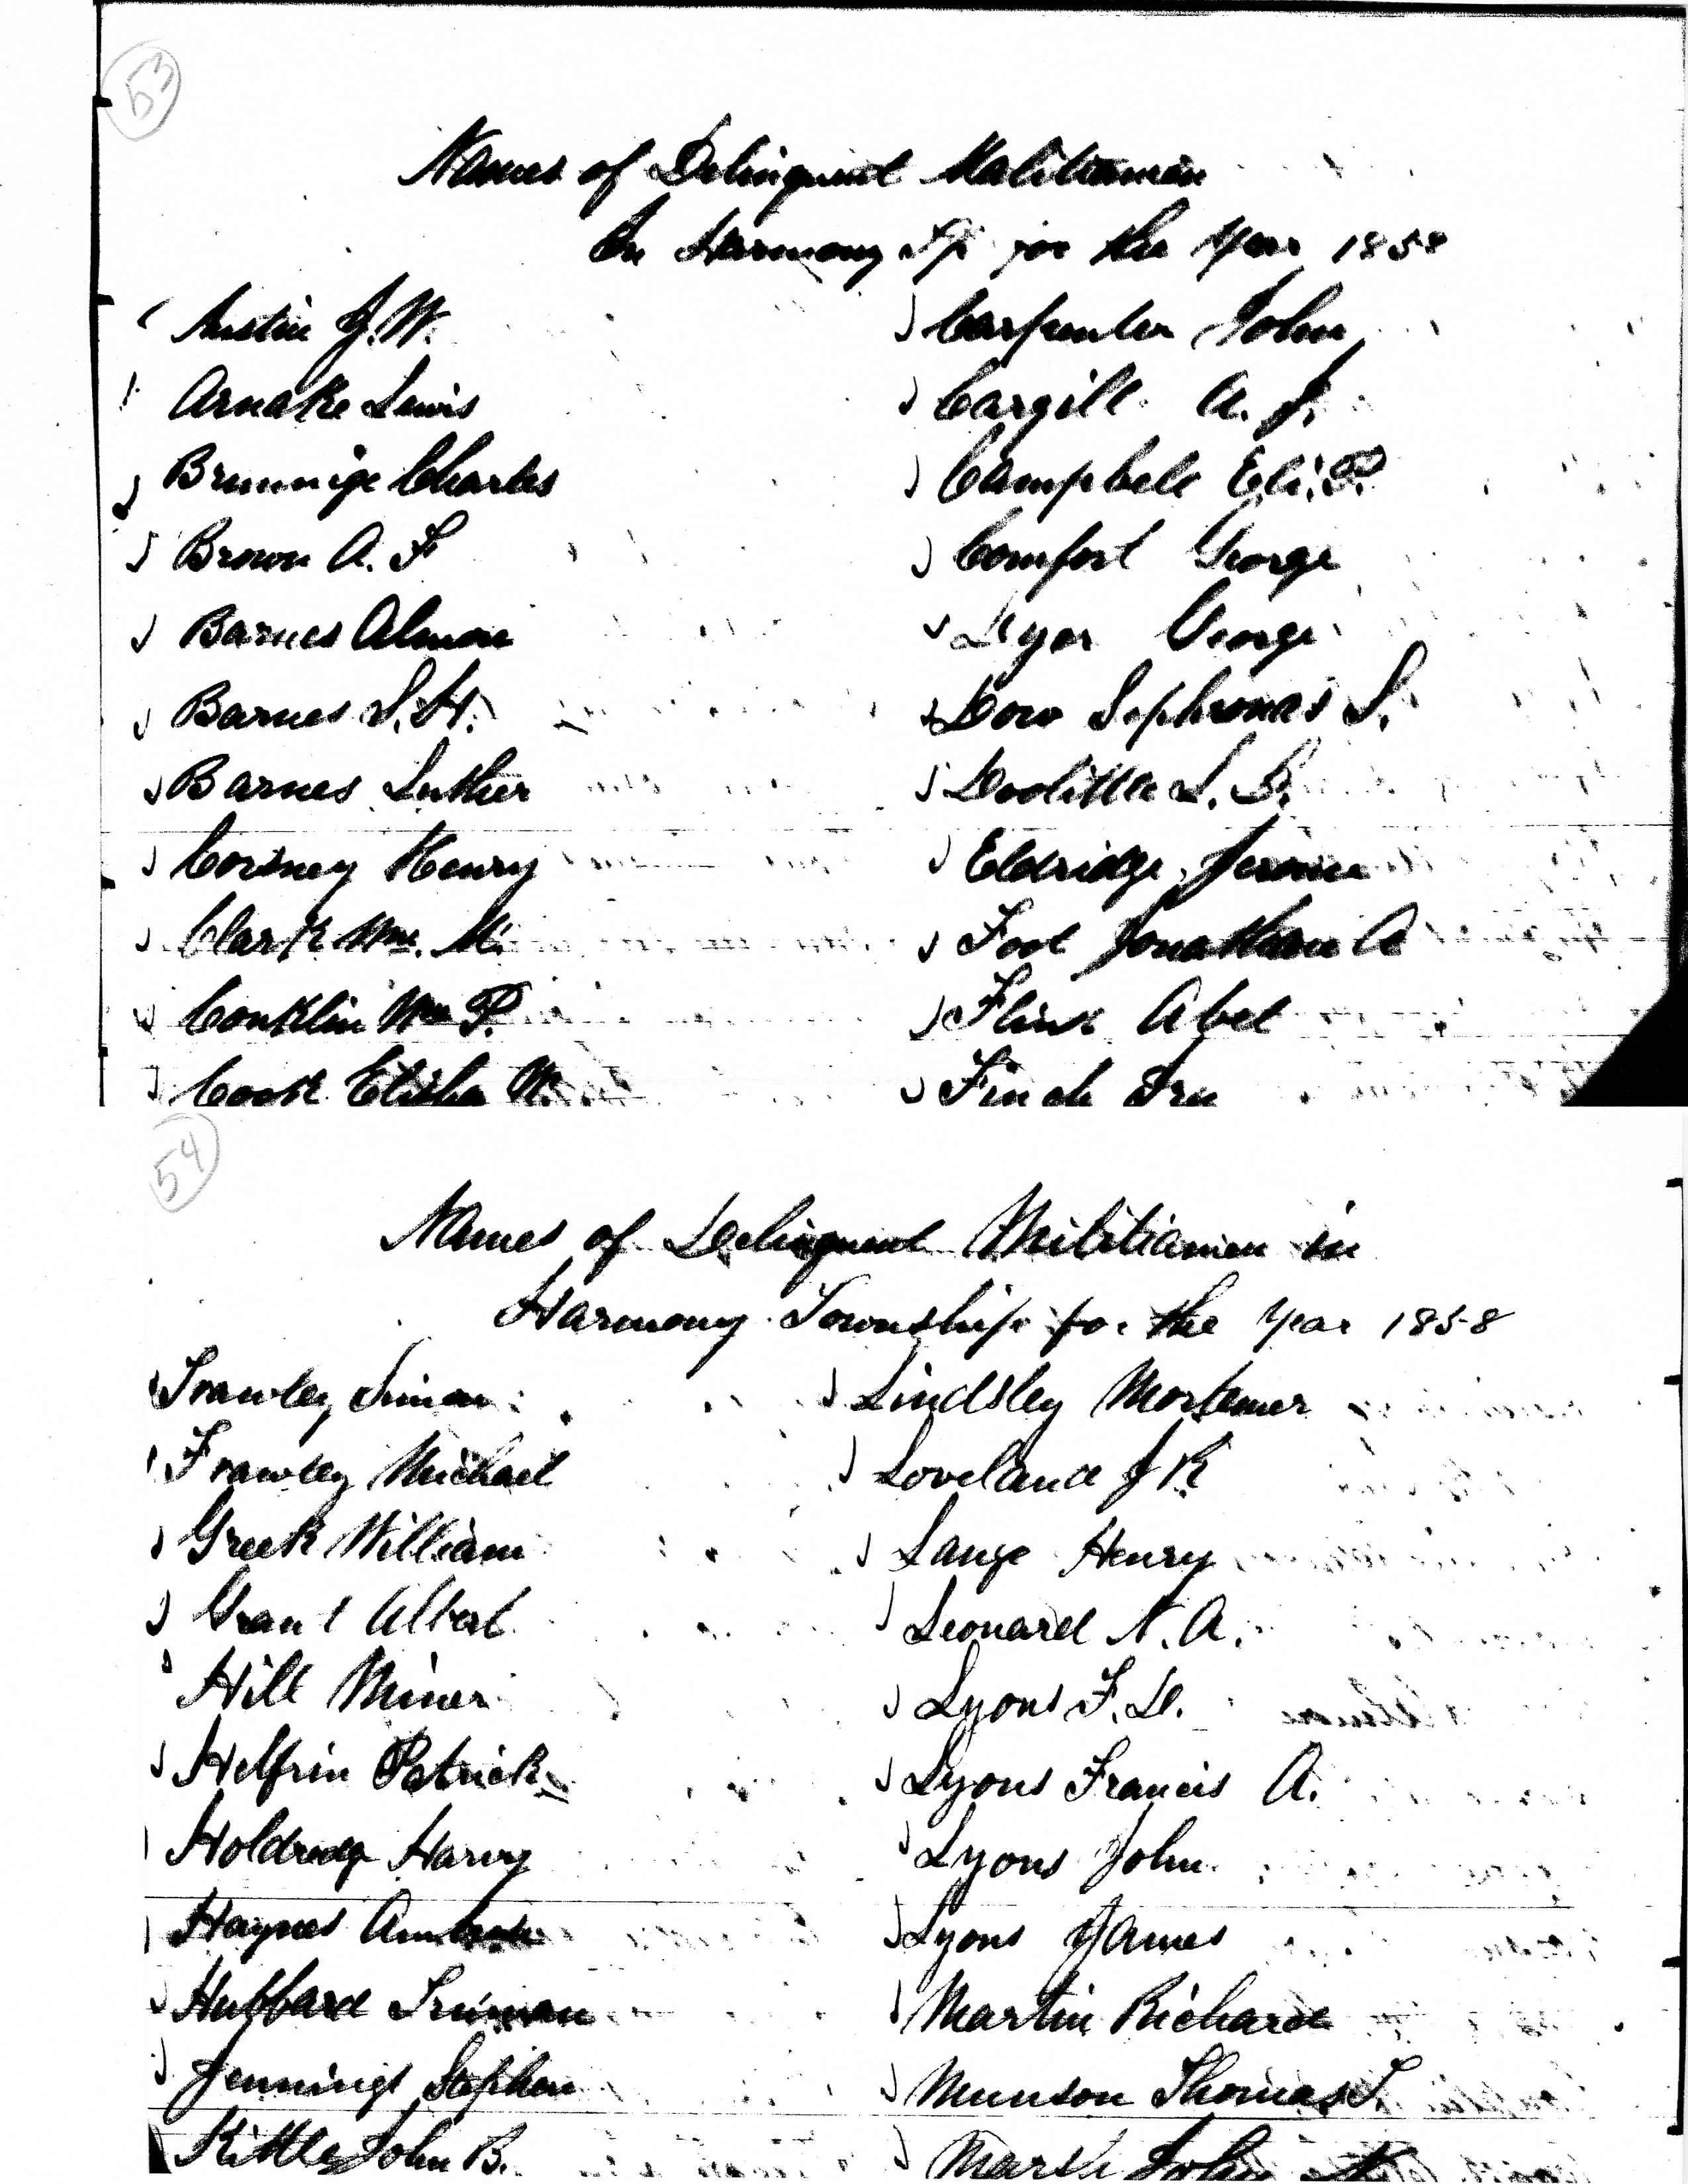 53
Names of Delinquent Malitiamen
In Harmony Tp for the Year 1858
Austin J. W.
Arnake Lewis
Charles
Brown A. F
Barnes Almon
Barnes S. H.
Barnes Luther
Corsney Henry
Clark Wm. M.
Conklin Wm P.
Cook Elisha W.
Carpenter John
Cargill A. J.
Campbell Eli. P.
Comfort George
Dyer George
Dow S.
Doolittle L. B.
Eldridge Jerome
Foot Jonathan A
Flink Abel
Finch Ira
54
Names of Delinquent Militiamen in
Harmony Township for the Year 1858
Frawley Simon
Frawley Michael
Greek William
Grant Albert
Hill Miner
Helfrin Patrick
Holdredge Harvy
Haynes Ambrose
Hubbard Truman
Jennings Stephen
Kittle John B.
Lindsley Mortemer
Loveland J R
Lange Henry
Leonard N. A.
Lyons F. D.
Lyons Francis A.
Lyons John
Lyons James
Martin Richard
Munson Thomas T.
John